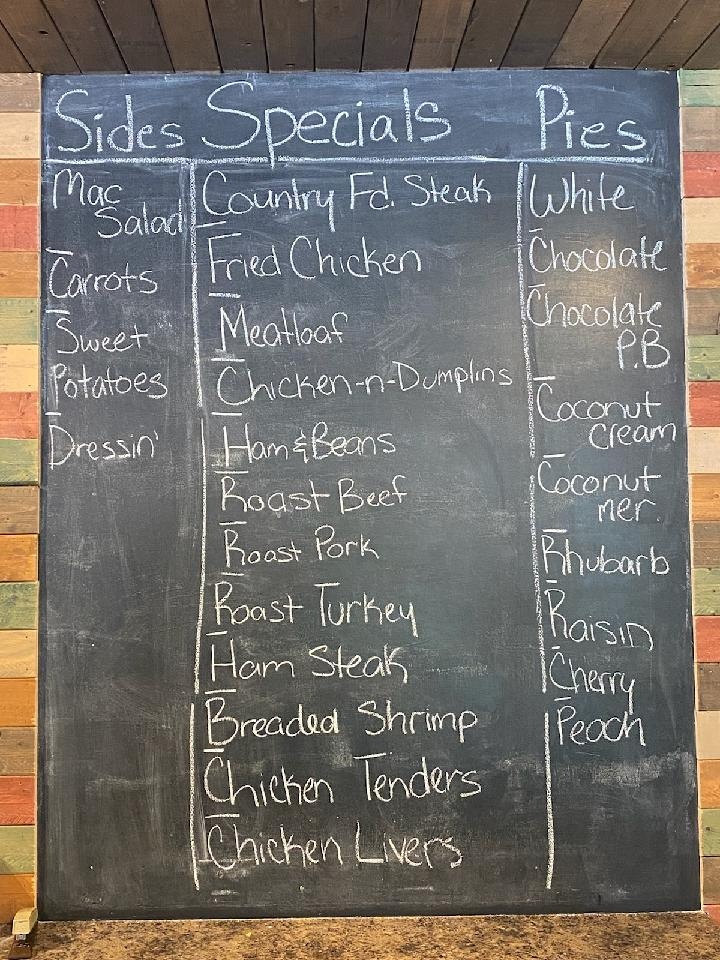 Sides
Mac
Salad
Carrots
Sweet
Potatoes
Dressin'
Specials
Country Fd. Steak
Fried Chicken
Meatloaf
Chicken-n-Dumplins
Ham & Beans
Roast Beef
Roast Pork
Roast Turkey
Ham Steak
Breaded Shrimp
Chicken Tenders
Chicken Livers
Pies
White
Chocolate
Chocolate
P.B
Coconut
Cream
Coconut
mer.
Rhubarb
Raisin
Cherry
Peach